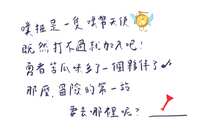 噗祖是一隻噗幣天使
既然打不過就加入吧!
勇者苦瓜味多了一個夥伴了
那麼,冒險的第一站
要去哪裡呢?